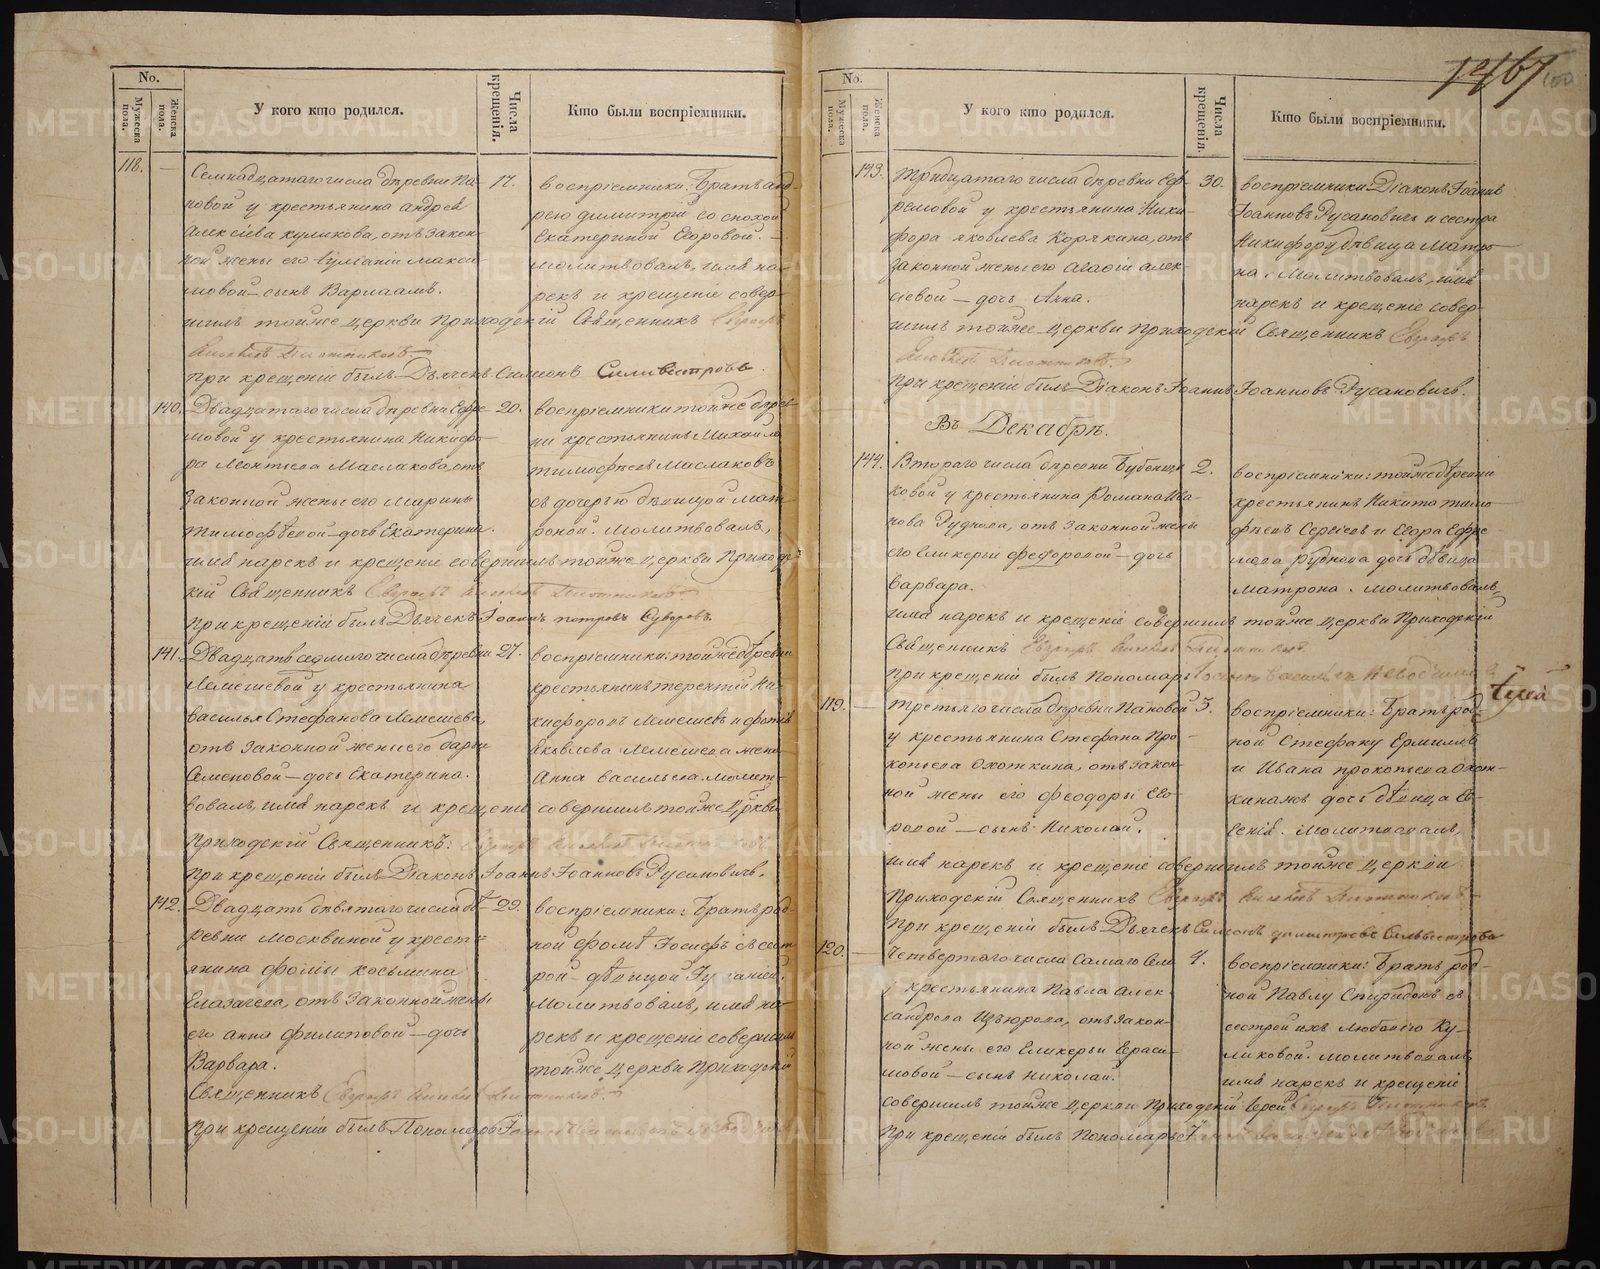 No.
Мужеска пола.
Женска пола.
У кого кто родился.
Числа крещенія.
Кто были воспріемники.
118.
Семнадцатаго числа деревни Па-
новой у крестьянина Андрея
Алексіева Куликова, отъ закон-
ной жены его Макси-
мовой – сынъ Варлаамъ.
17.
воспріемники: братъ Анд-
рею Димитрій со снохой
Екатериной Егоровой. –
Молитвовалъ, имя на-
рекъ и крещеніе совер-
шилъ тойже церкви Приходскій Священникъ
при крещеніи былъ Дьячекъ Симеонъ Силивестровъ.
140.
Двадцатаго числа деревни Ефре-
мовой у крестьянина Никифо-
ра Леонтьева Маслакова, отъ
законной жены его Марины
Тимофѣевой – дочь Екатерина.
20.
воспріемники: тойже дерев-
ни крестьянинъ Михаило
Тимофѣевъ Маслаковъ
съ дочерью дѣвицой Мат-
роной. Молитвовалъ,
имя нарекъ и крещеніе совершилъ тойже церкви Приходс-
кій Священникъ
при крещеніи былъ Дьячекъ Іоаннъ Петровъ Суворовъ.
141.
Двадцать седмаго числа деревни
Лемешевой у крестьянина
Василья Стефанова Лемешева,
отъ законной жены его Дарьи
Семеновой – дочь Екатерина.
27.
воспріемники: тойже деревни
крестьянинъ Терентій Ни-
кифоровъ Лемешевъ и
Яковлева Лемешева жена
Анна Васильева. Молит-
вовалъ, имя нарекъ и крещеніе совершилъ тойже Церкви
Приходскій Священникъ:
при крещеніи былъ Діаконъ Іоаннъ Іоанновъ Русановичъ.
142.
Двадцать девятаго числа де-
ревни Москвиной у кресть-
янина Фомы Косьмина
Глазачева, отъ законной жены
его Анна Филиповой – дочь
Варвара.
29.
воспріемники: братъ род-
ной Фомѣ Іосифъ съ сест-
рой дѣвицой
Молитвовалъ, имя на-
рекъ и крещеніе совершилъ
тойже церкви Приходскій
Священникъ
при крещеніи былъ Пономарь
1267
No.
Мужеска пола.
Женска пола.
У кого кто родился.
Числа крещенія.
Кто были воспріемники.
143.
Тридцатаго числа деревни Еф-
ремовой у крестьянина Ники-
фора Яковлева Корякина, отъ
законной жены его Агафіи Алек-
сіевой – дочь Анна.
30.
воспріемники Діаконъ Іоаннъ
Іоанновъ Русановичъ и сестра
Никифору дѣвица Матро-
на. Молитвовалъ, имя
нарекъ и крещеніе совер-
шилъ тойже церкви Приходскій Священникъ
при крещеніи былъ Діаконъ Іоаннъ Іоанновъ Русановичъ.
Въ Декабрѣ.
144.
Втораго числа деревни Бубенщи-
ковой у крестьянина Романа Ива-
нова Руднева, отъ законной жены
его Гликеріи Федоровой – дочь
Варвара.
2.
воспріемники: тойже деревни
крестьянинъ Никита Тимо-
фѣевъ Сергеевъ и Егора Ефре-
мова Руднева дочь дѣвица
Матрона. Молитвовалъ,
имя нарекъ и крещеніе совершилъ тойже церкви Приходскій
Священникъ
при крещеніи былъ Пономарь
119.
Третьяго числа деревни Пановой
у крестьянина Стефана Про-
копьева Охоткина, отъ закон-
ной жены его Феодоры Его-
ровой – сынъ Николай.
3.
воспріемники: братъ род-
ной Стефану Ермилъ
и Ивана Прокопьева Охот-
кинамъ дочь дѣвица Ев-
генія. Молитвовалъ,
имя нарекъ и крещеніе совершилъ тойже Церкви
Приходскій Священникъ
при крещеніи былъ Дьячекъ Симеонъ Димитріевъ Сильвестровъ
120.
Четвертаго числа Самаго Села
у крестьянина Павла Алек-
сандрова Изъюрова, отъ закон-
ной жены его Гликерьи Гераси-
мовой – сынъ Николай.
4.
воспріемники: братъ род-
ной Павлу Спиридонъ съ
сестрой ихъ Любовію Ку-
ликовой. Молитвовалъ,
имя нарекъ и крещеніе
совершилъ тойже церкви Приходскій Іерей
при крещеніи былъ Пономарь
METRIKI.GASO-URAL.RU